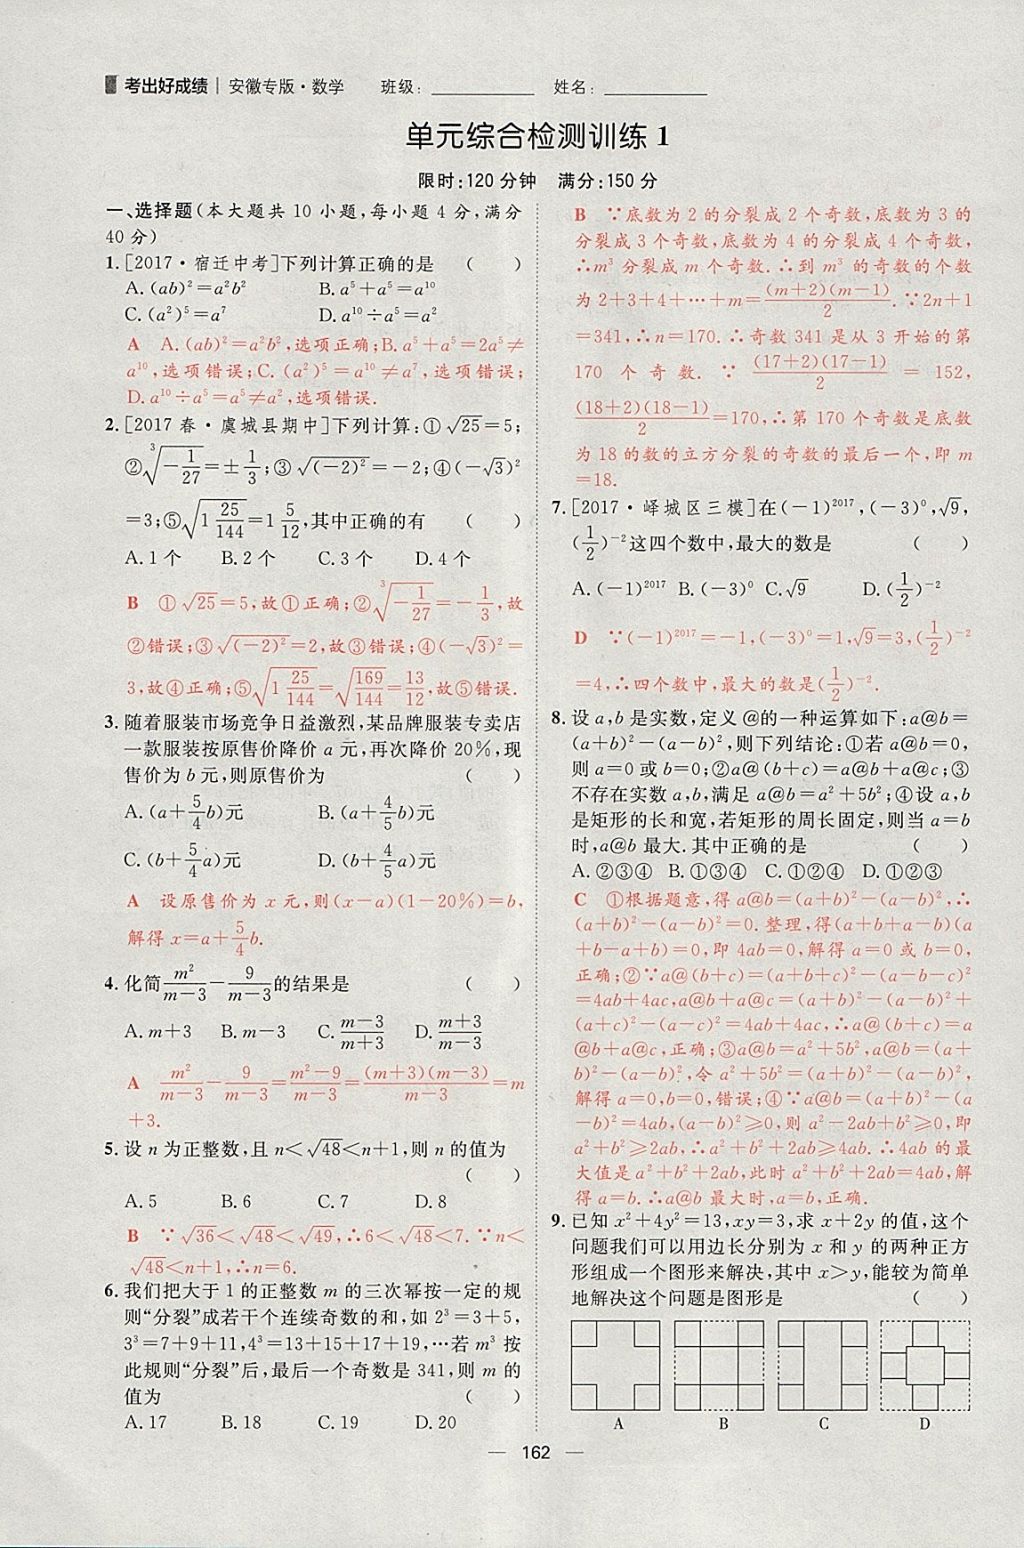 考出好成绩 | 安徽专版·数学 班级：________ 姓名：________
单元综合检测训练 1
限时:120分钟 满分:150分
一、选择题(本大题共 10 小题,每小题 4 分,满分
40 分)
1. [2017·宿迁中考]下列计算正确的是 ( )
A. (ab)²=a²b² B. a⁵+a⁵=a¹⁰
C. (a²)⁵=a⁷ D. a¹⁰÷a⁵=a²
A A. (ab)²=a²b²,选项正确;B. a⁵+a⁵=2a⁵≠
a¹⁰,选项错误;C. (a²)⁵=a¹⁰≠a⁷,选项错误;
D. a¹⁰÷a⁵=a⁵≠a²,选项错误.
2. [2017 春·虞城县期中]下列计算:①√25=5;
②∛(-1/27)=±1/3;③√(-2)²=-2;④(-√3)²
=3;⑤√(1 25/144)=1 5/12,其中正确的有 ( )
A. 1 个 B. 2 个 C. 3 个 D. 4 个
B ①√25=5,故①正确;②∛(-1/27)=-1/3,故
②错误;③√(-2)²=2,故③错误;④(-√3)²=
3,故④正确;⑤√(1 25/144)=√(169/144)=13/12,故⑤错误.
3. 随着服装市场竞争日益激烈,某品牌服装专卖店
一款服装按原售价降价 a 元,再次降价 20%,现
售价为 b 元,则原售价为 ( )
A. (a+5/4 b)元 B. (a+4/5 b)元
C. (b+5/4 a)元 D. (b+4/5 a)元
A 设原售价为 x 元,则(x-a)(1-20%)=b,
解得 x=a+5/4 b.
4. 化简 m²/(m-3) - 9/(m-3) 的结果是 ( )
A. m+3 B. m-3 C. (m-3)/(m+3) D. (m+3)/(m-3)
A m²/(m-3) - 9/(m-3) = (m²-9)/(m-3) = (m+3)(m-3)/(m-3) = m
+3.
5. 设 n 为正整数,且 n<√48<n+1,则 n 的值为
( )
A. 5 B. 6 C. 7 D. 8
B ∵√36<√48<√49,∴6<√48<7. ∵n<
√48<n+1,∴n=6.
6. 我们把大于 1 的正整数 m 的三次幂按一定的规
则“分裂”成若干个连续奇数的和,如 2³=3+5,
3³=7+9+11,4³=13+15+17+19,…若 m³ 按
此规则“分裂”后,最后一个奇数是 341,则 m 的
值为 ( )
A. 17 B. 18 C. 19 D. 20
B ∵底数为 2 的分裂成 2 个奇数,底数为 3 的
分裂成 3 个奇数,底数为 4 的分裂成 4 个奇数,
∴m³ 分裂成 m 个奇数. ∴到 m³ 的奇数的个数
为 2+3+4+…+m=(m+2)(m-1)/2. ∵2n+1
=341,∴n=170. ∴奇数 341 是从 3 开始的第
170 个奇数. ∵ (17+2)(17-1)/2 = 152,
(18+2)(18-1)/2=170,∴第 170 个奇数是底数
为 18 的数的立方分裂的奇数的最后一个,即 m
=18.
7. [2017·峄城区三模]在(-1)²⁰¹⁷,(-3)⁰,√9,
(1/2)⁻²这四个数中,最大的数是 ( )
A. (-1)²⁰¹⁷ B. (-3)⁰ C. √9 D. (1/2)⁻²
D ∵(-1)²⁰¹⁷=-1,(-3)⁰=1,√9=3,(1/2)⁻²
=4,∴四个数中,最大的数是(1/2)⁻².
8. 设 a,b 是实数,定义@的一种运算如下:a@b=
(a+b)²-(a-b)²,则下列结论:①若 a@b=0,
则 a=0 或 b=0;②a@(b+c)=a@b+a@c;③
不存在实数 a,b,满足 a@b=a²+5b²;④设 a,b
是矩形的长和宽,若矩形的周长固定,则当 a=b
时,a@b 最大. 其中正确的是 ( )
A. ②③④ B. ①③④ C. ①②④ D. ①②③
C ①根据题意,得 a@b=(a+b)²-(a-b)²,∴
(a+b)²-(a-b)²=0. 整理,得(a+b+a-b)(a
+b-a+b)=0,即 4ab=0,解得 a=0 或 b=0,
正确;②∵a@(b+c)=(a+b+c)²-(a-b-c)²
=4ab+4ac,a@b+a@c=(a+b)²-(a-b)²+
(a+c)²-(a-c)²=4ab+4ac,∴a@(b+c)=a
@b+a@c,正确;③a@b=a²+5b²,a@b=(a+
b)²-(a-b)²,令 a²+5b²=(a+b)²-(a-b)²,
解得 a=0,b=0,错误;④∵a@b=(a+b)²-(a
-b)²=4ab,(a-b)²≥0,则 a²-2ab+b²≥0,即
a²+b²≥2ab,∴a²+b²+2ab≥4ab,∴4ab 的最
大值是 a²+b²+2ab,此时 a²+b²+2ab=4ab,解
得 a=b. ∴a@b 最大时,a=b,正确.
9. 已知 x²+4y²=13,xy=3,求 x+2y 的值,这个
问题我们可以用边长分别为 x 和 y 的两种正方
形组成一个图形来解决,其中 x>y,能较为简单
地解决这个问题是图形是 ( )
A B C D
— 162 —